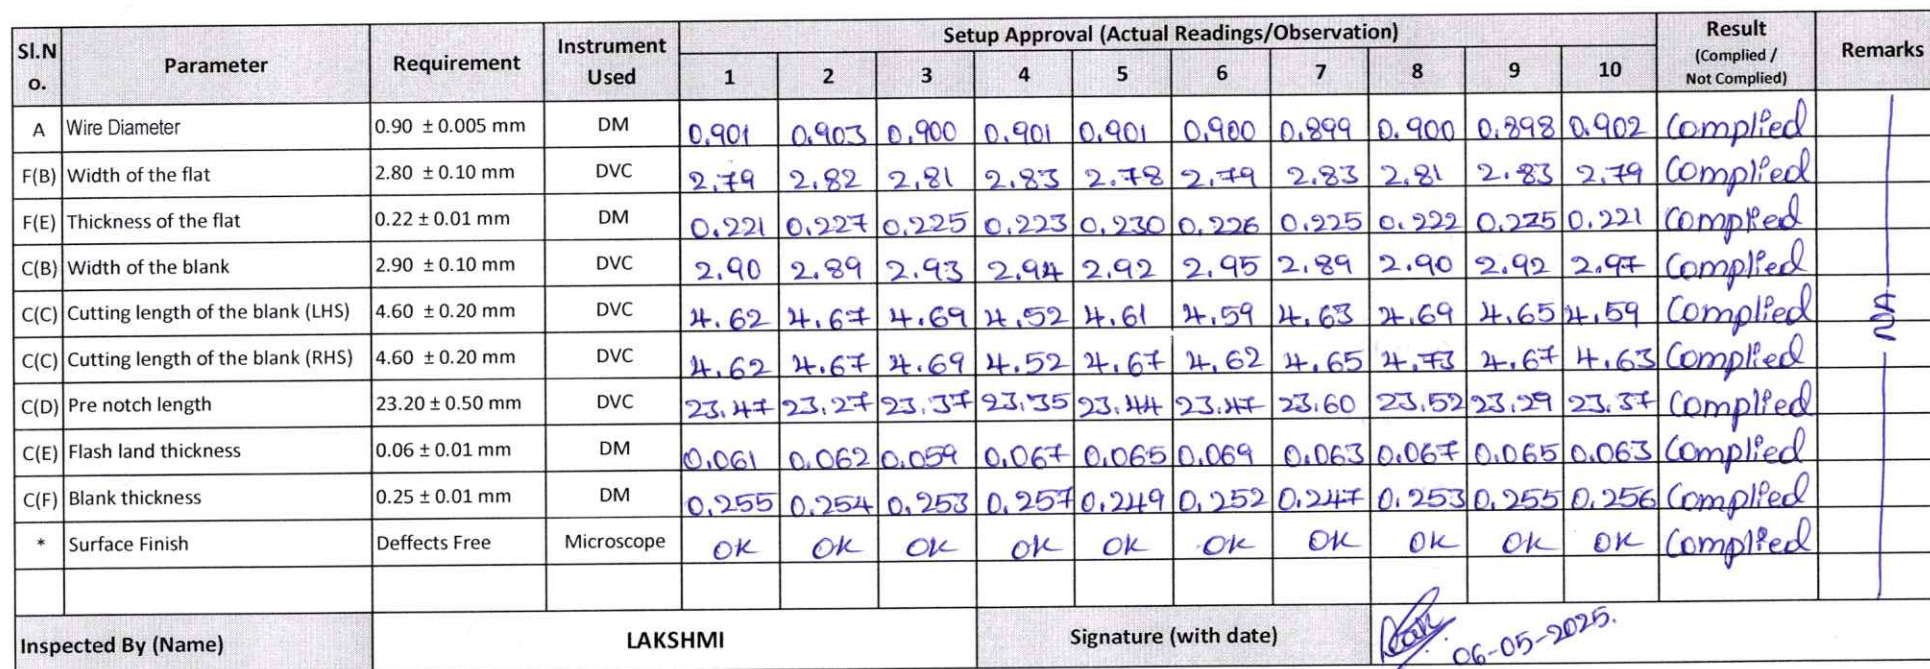 Sl.No. Parameter Requirement Instrument Used Setup Approval (Actual Readings/Observation) Result (Complied / Not Complied) Remarks
1 2 3 4 5 6 7 8 9 10
A Wire Diameter 0.90 ± 0.005 mm DM 0.901 0.903 0.900 0.901 0.901 0.900 0.899 0.900 0.898 0.902 Complied
F(B) Width of the flat 2.80 ± 0.10 mm DVC 2.79 2.82 2.81 2.83 2.78 2.79 2.83 2.81 2.83 2.79 Complied
F(E) Thickness of the flat 0.22 ± 0.01 mm DM 0.221 0.227 0.225 0.223 0.230 0.226 0.225 0.222 0.225 0.221 Complied
C(B) Width of the blank 2.90 ± 0.10 mm DVC 2.90 2.89 2.93 2.94 2.92 2.95 2.89 2.90 2.92 2.97 Complied
C(C) Cutting length of the blank (LHS) 4.60 ± 0.20 mm DVC 4.62 4.67 4.69 4.52 4.61 4.59 4.63 4.69 4.65 4.59 Complied
C(C) Cutting length of the blank (RHS) 4.60 ± 0.20 mm DVC 4.62 4.67 4.69 4.52 4.67 4.62 4.65 4.73 4.67 4.63 Complied
C(D) Pre notch length 23.20 ± 0.50 mm DVC 23.47 23.27 23.37 23.35 23.44 23.47 23.60 23.52 23.29 23.37 Complied
C(E) Flash land thickness 0.06 ± 0.01 mm DM 0.061 0.062 0.059 0.067 0.065 0.069 0.063 0.067 0.065 0.063 Complied
C(F) Blank thickness 0.25 ± 0.01 mm DM 0.255 0.254 0.253 0.257 0.249 0.252 0.247 0.253 0.255 0.256 Complied
* Surface Finish Deffects Free Microscope OK OK OK OK OK OK OK OK OK OK Complied
Inspected By (Name) LAKSHMI Signature (with date) 06-05-2025.